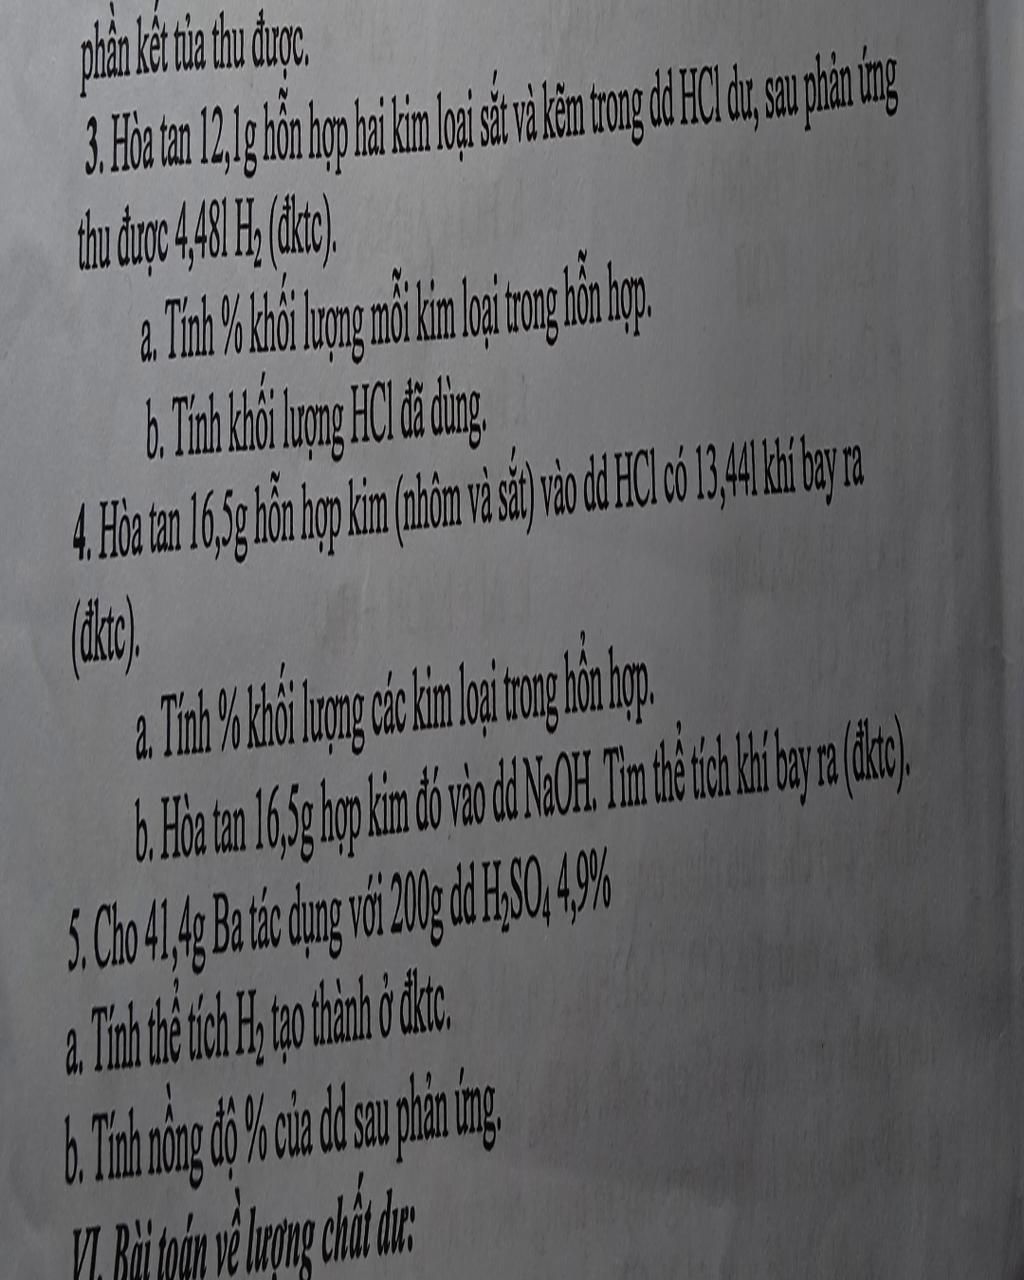 phần kết tủa thu được.
3. Hòa tan 12,1g hỗn hợp hai kim loại sắt và kẽm trong dd HCl dư, sau phản ứng
thu được 4,48l H₂ (đktc).
a. Tính % khối lượng mỗi kim loại trong hỗn hợp.
b. Tính khối lượng HCl đã dùng.
4. Hòa tan 16,5g hỗn hợp kim (nhôm và sắt) vào dd HCl có 13,44l khí bay ra
(đktc).
a. Tính % khối lượng các kim loại trong hổn hợp.
b. Hòa tan 16,5g hợp kim đó vào dd NaOH. Tìm thể tích khí bay ra (đktc).
5. Cho 41,4g Ba tác dụng với 200g dd H₂SO₄ 4,9%
a. Tính thể tích H₂ tạo thành ở đktc.
b. Tính nồng độ % của dd sau phản ứng.
VI. Bài toán về lượng chất dư: